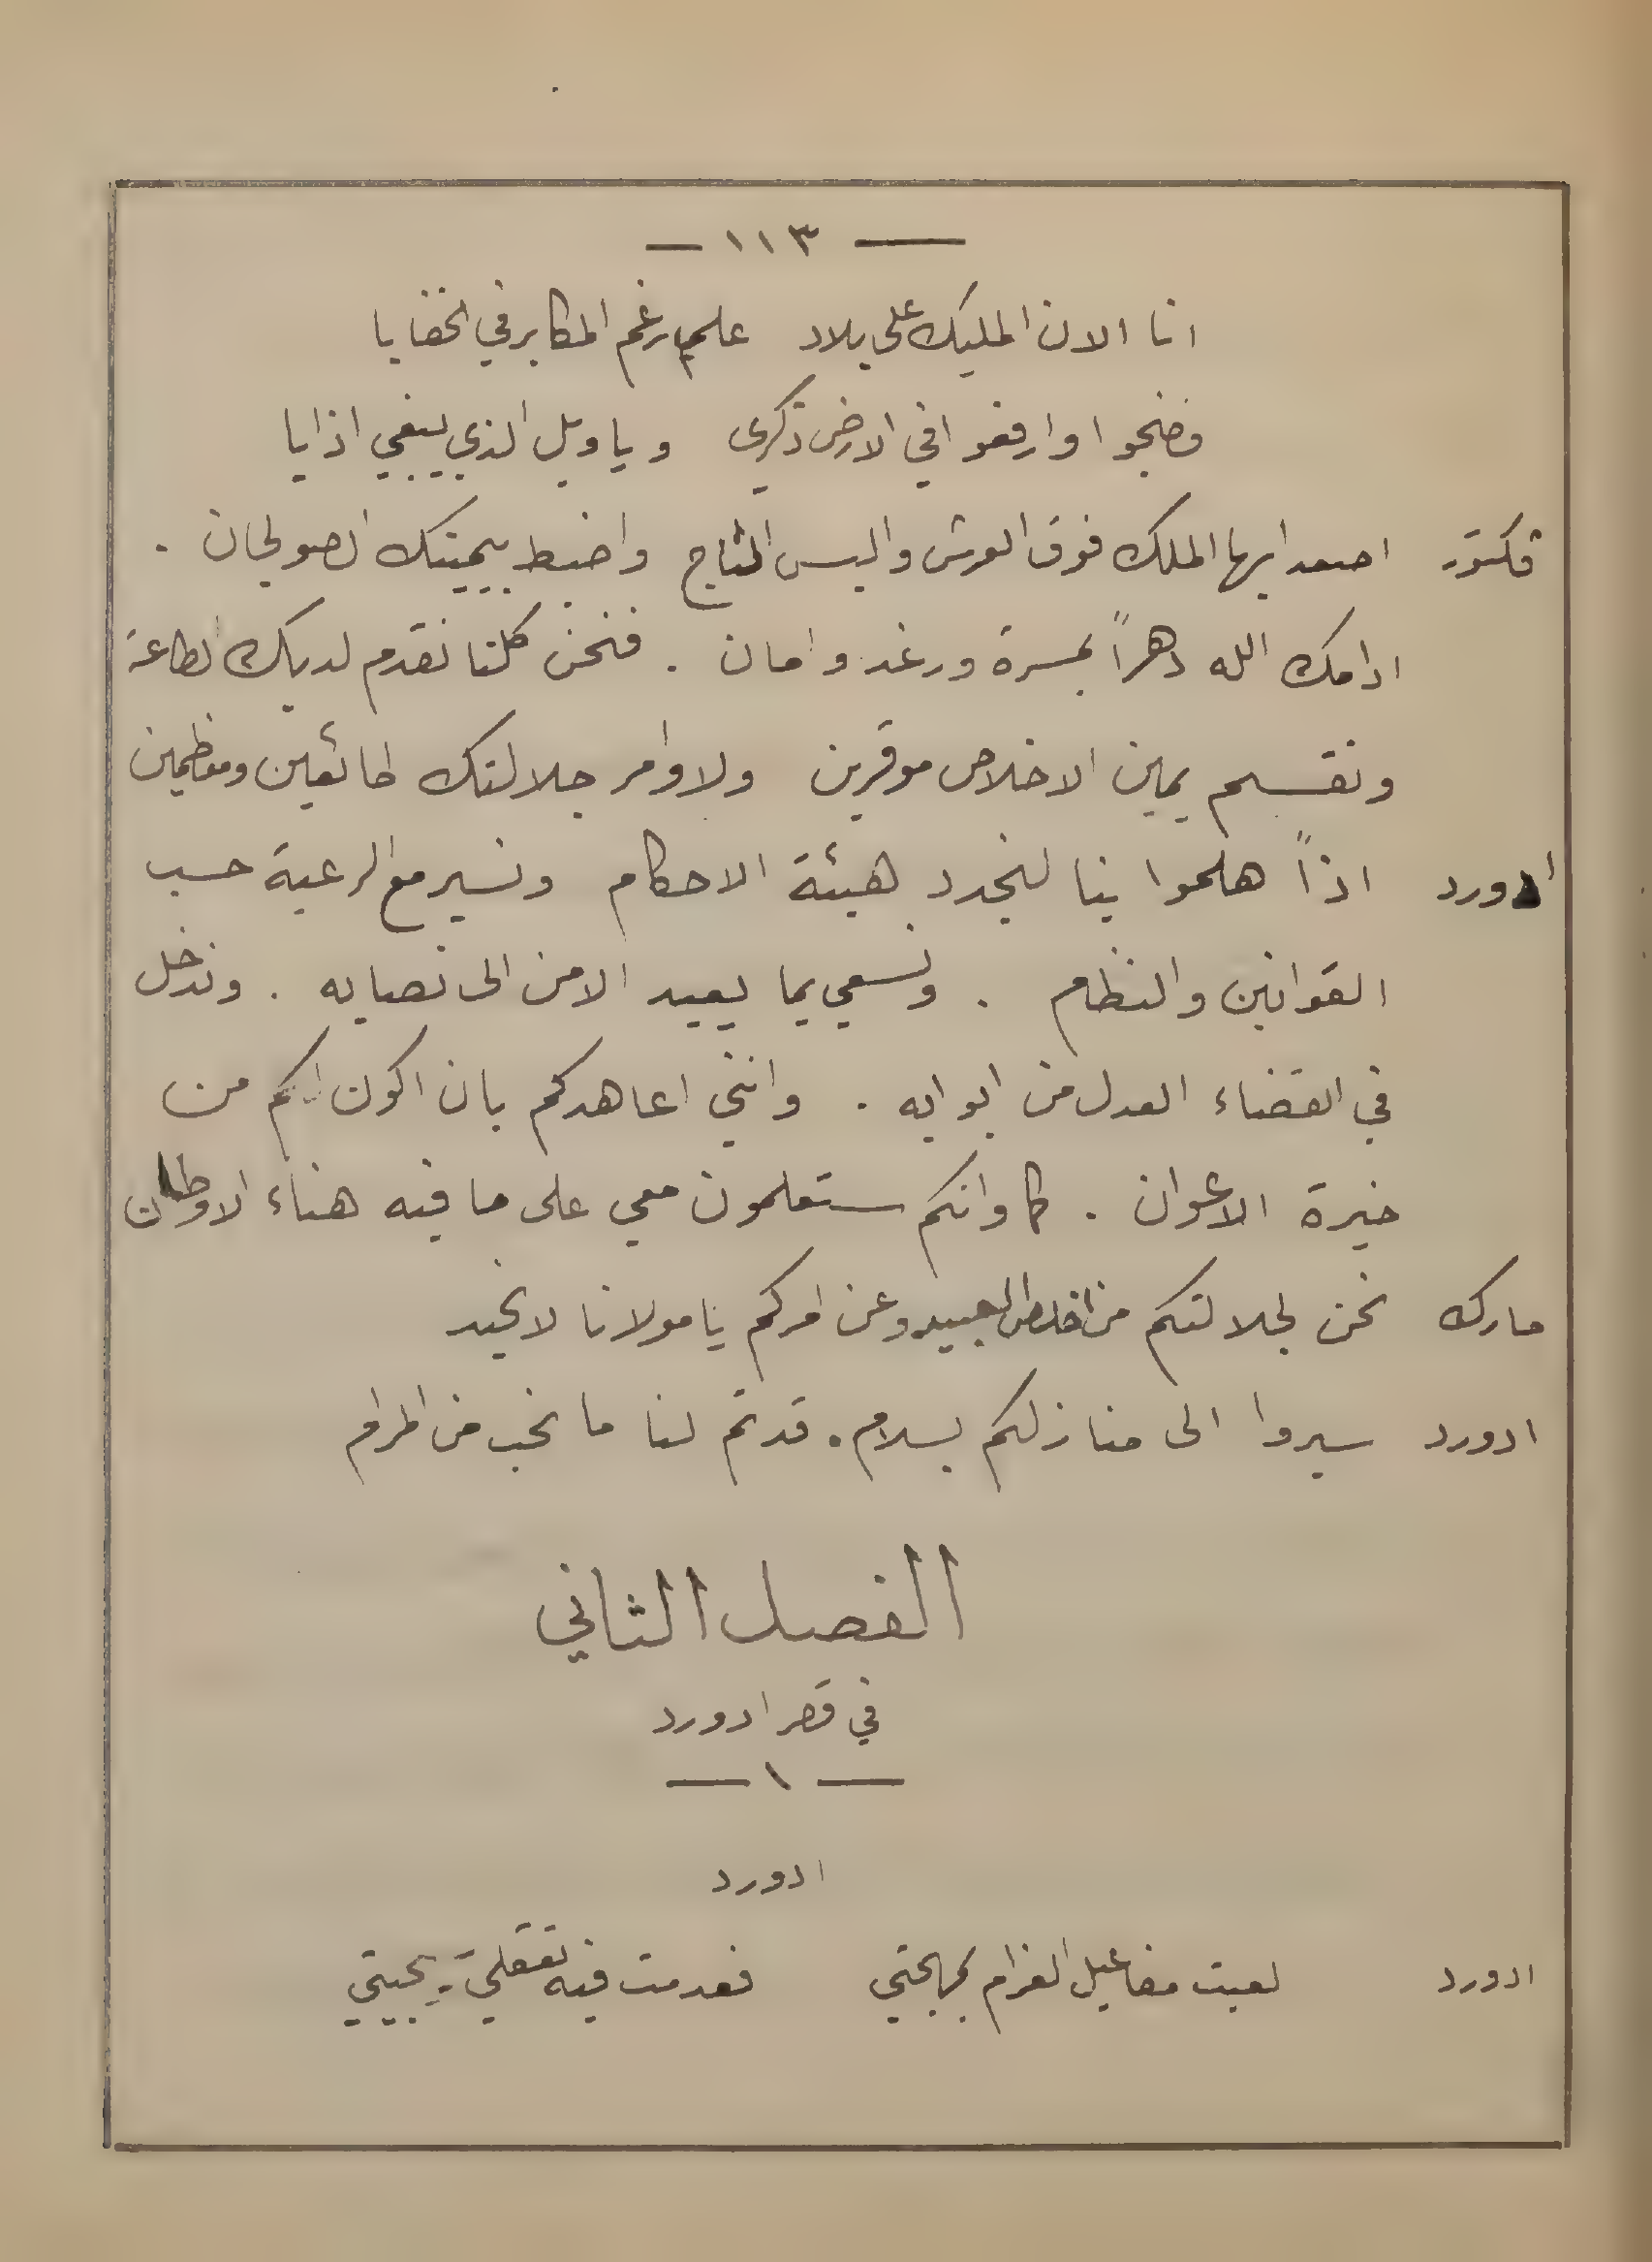 — ١١٣ —
انا الان المليك على بلاد علي رغم المكابر في الخفايا
فضجوا وارفعوا في الارض ذكري ويا ويل الذي يبغي اذايا
فكتور اصعد ايها الملك فوق العرش والبس التاج واضبط بيمينك الصولجان .
ادامك الله دهراً بمسرة ورغد وامان . فنحن كلنا نقدم لديك الطاعة
ونقسم يمين الاخلاص موقرين ولاوامر جلالتك طائعين ومعظمين
ادورد اذاً هلموا بنا لنجدد هيئة الاحكام ونسير مع الرعية حسب
القوانين والنظام . ونسعي بما يعيد الامن الى نصابه . وندخل
في القضاء العدل من ابوابه . وانني اعاهدكم بان اكون لكم من
خيرة الاعوان . كما وانكم ستعلمون معي على ما فيه هناء الاوطان
مارك نحن لجلالتكم من اخلص العبيد وعن امركم يا مولانا لا نحيد
ادورد سيروا الى منازلكم بسلام . قد تم لنا ما نحب من المرام
الفصل الثاني
في قصر ادورد
— ١ —
ادورد
ادورد لعبت مفاعيل الغرام بمهجتي فعدمت فيه تعقلي بمحبتي